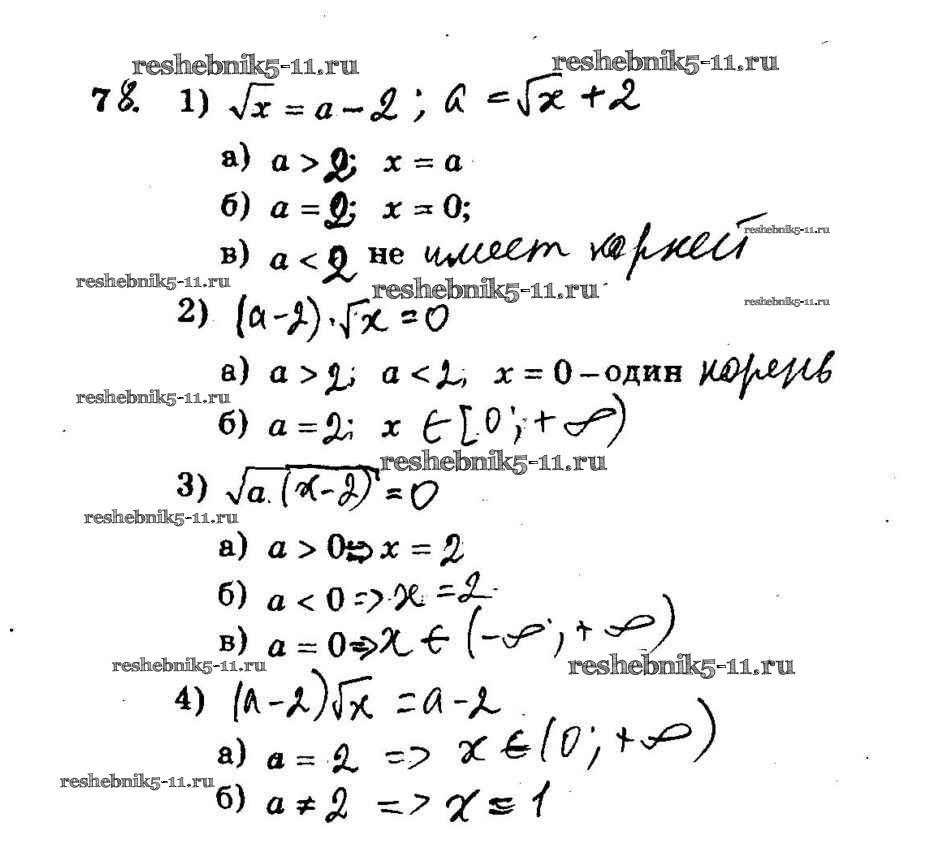 reshebnik5-11.ru reshebnik5-11.ru
78. 1) √x = a − 2; a = √x + 2
а) a > 2; x = a
б) a = 2; x = 0;
reshebnik5-11.ru
в) a < 2 не имеет корней
reshebnik5-11.ru
reshebnik5-11.ru
reshebnik5-11.ru
2) (a − 2) · √x = 0
а) a > 2; a < 2; x = 0 – один корень
reshebnik5-11.ru
б) a = 2; x ∈ [0; +∞)
reshebnik5-11.ru
3) √a·(x−2) = 0
reshebnik5-11.ru
а) a > 0 => x = 2
б) a < 0 => x = 2
в) a = 0 => x ∈ (−∞; +∞)
reshebnik5-11.ru reshebnik5-11.ru
4) (a − 2)√x = a − 2
а) a = 2 => x ∈ (0; +∞)
reshebnik5-11.ru
б) a ≠ 2 => x = 1